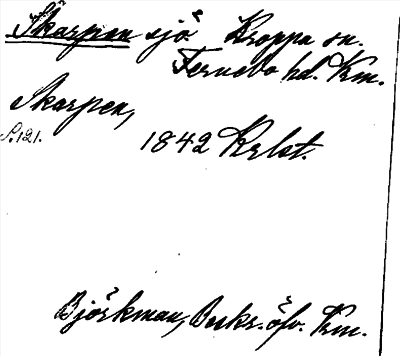 Skarpen sjö Kroppa sn.
Fernebo hd. Krm.
Skarpen,
S. 121.
1842 Krlst.
Björkman, Beskr. öfv. Krm.